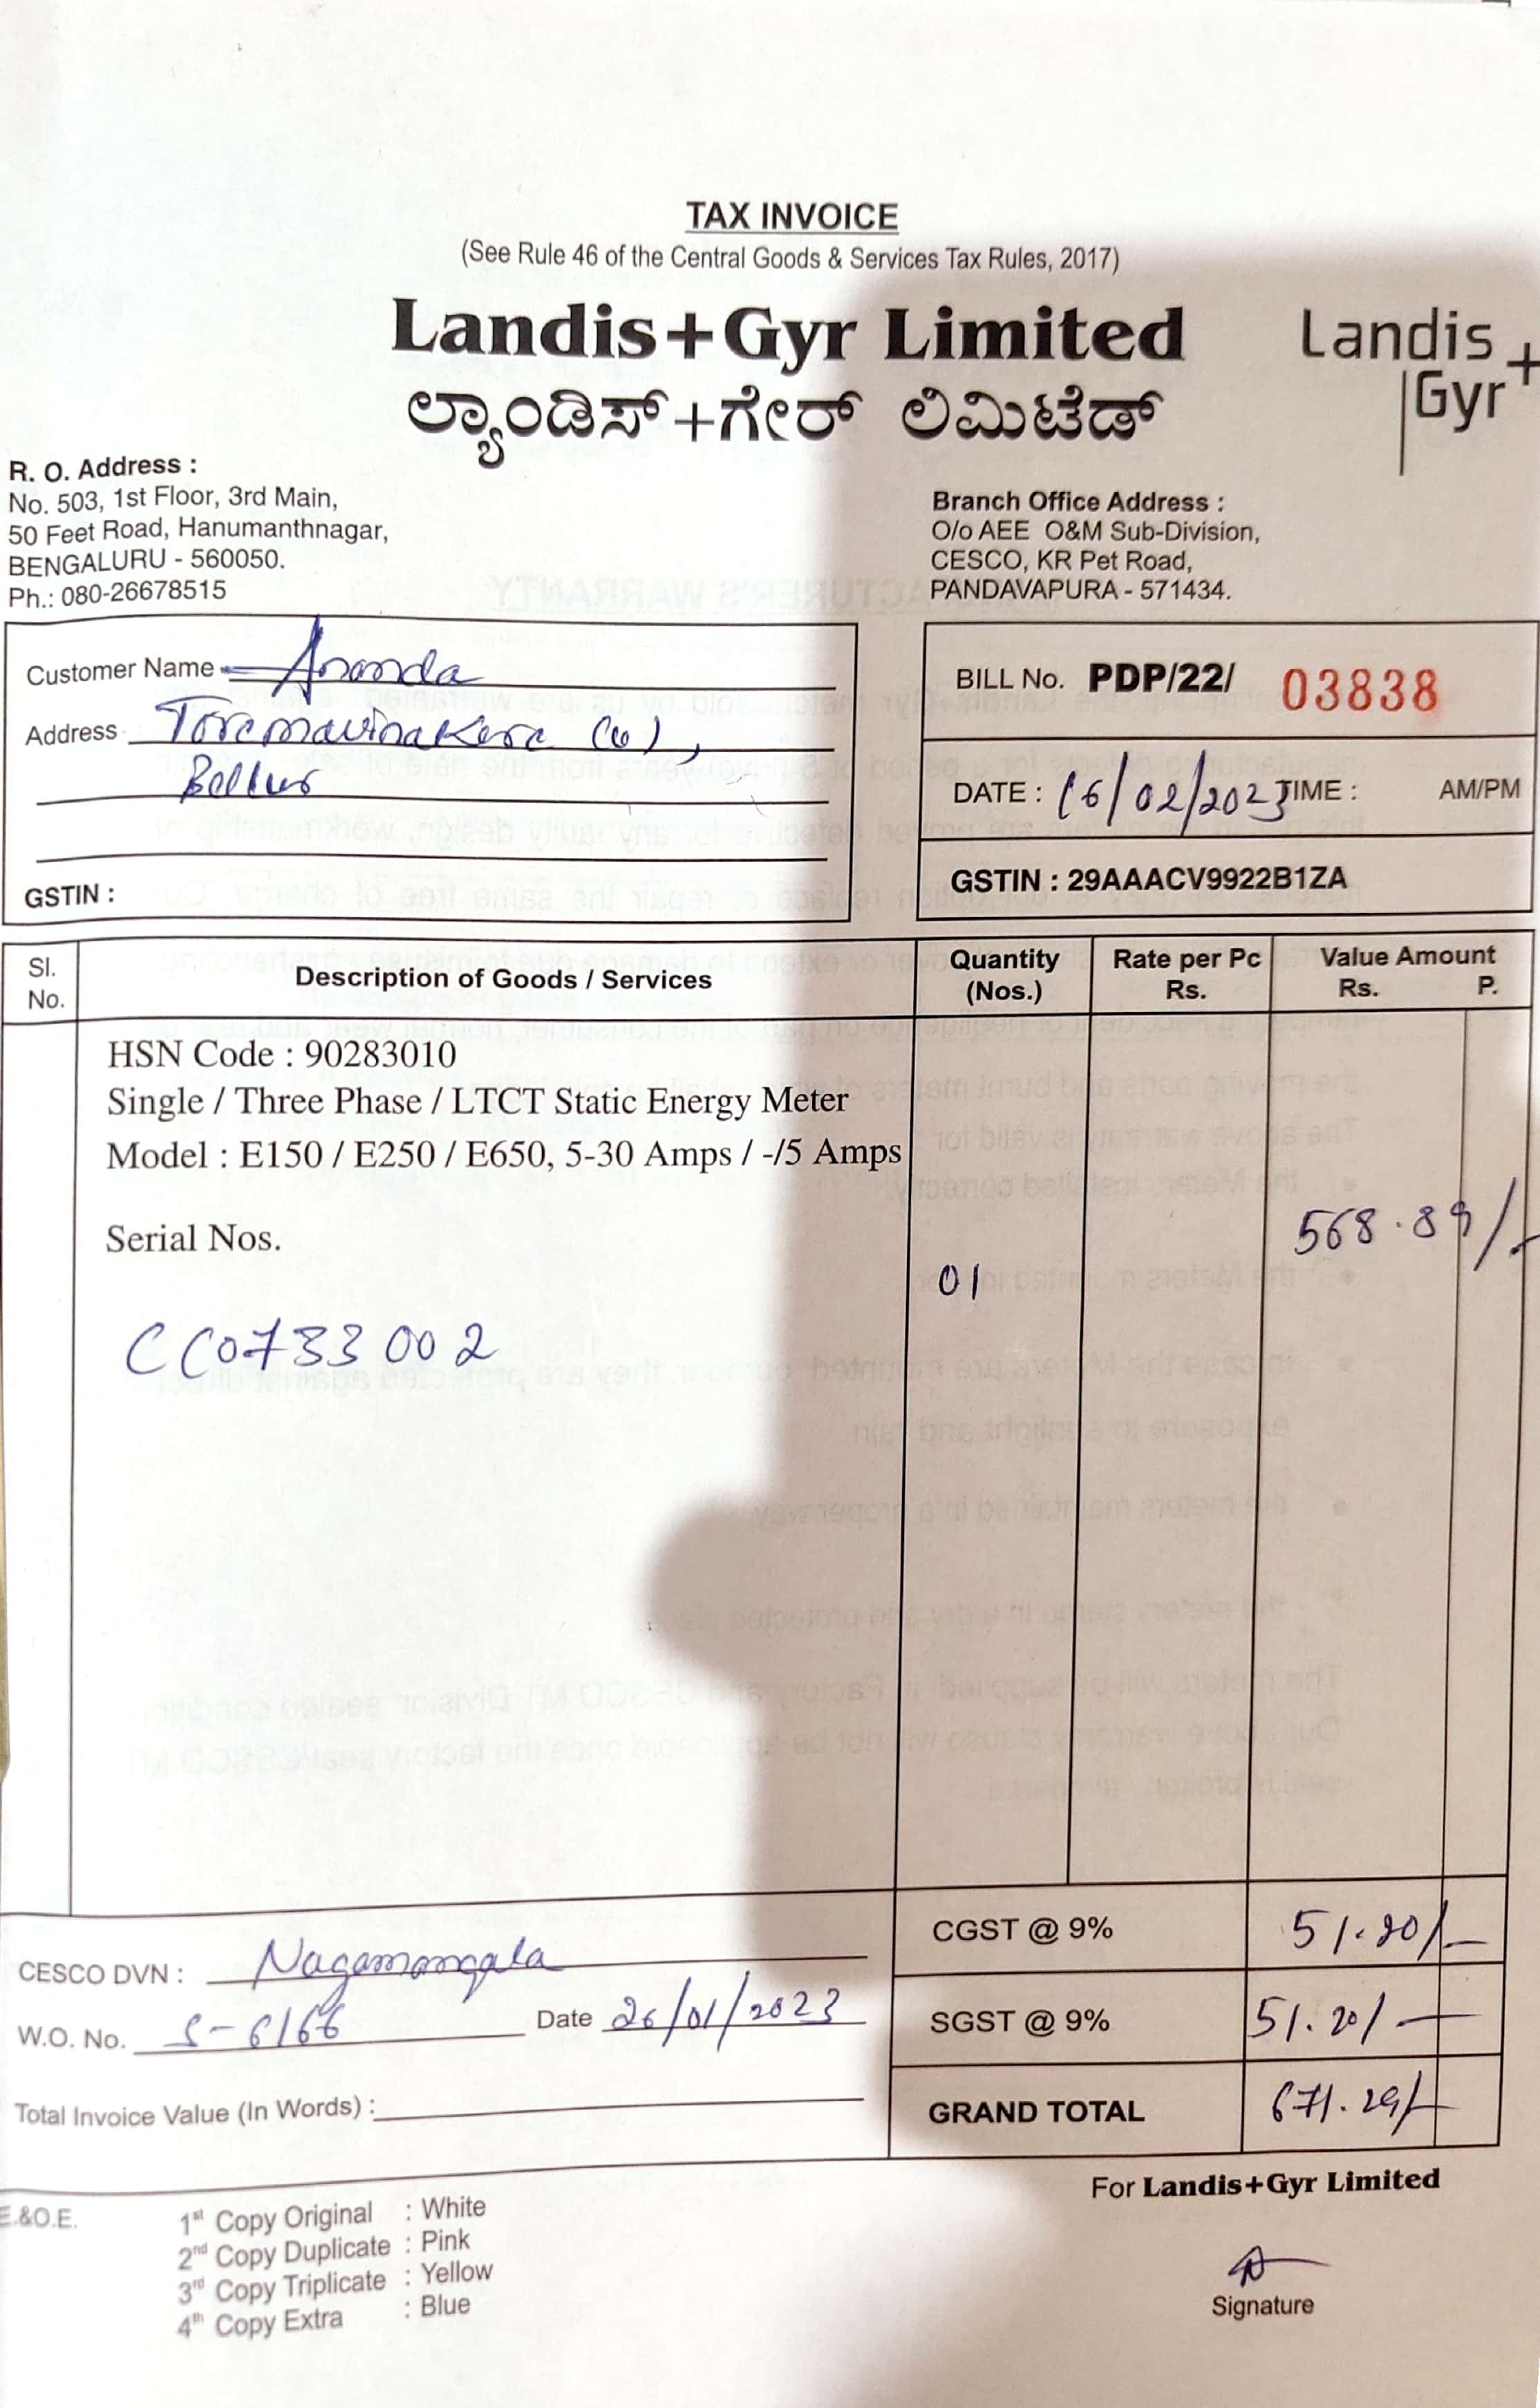 TAX INVOICE
(See Rule 46 of the Central Goods & Services Tax Rules, 2017)
Landis+Gyr Limited
ಲ್ಯಾಂಡಿಸ್+ಗೇರ್ ಲಿಮಿಟೆಡ್
Landis
Gyr+
R. O. Address :
No. 503, 1st Floor, 3rd Main,
50 Feet Road, Hanumanthnagar,
BENGALURU - 560050.
Ph.: 080-26678515
Branch Office Address :
O/o AEE O&M Sub-Division,
CESCO, KR Pet Road,
PANDAVAPURA - 571434.
Customer Name Ananda
Address Toremavinakere (v),
Bellur
GSTIN :
BILL No. PDP/22/ 03838
DATE : 16/02/2023 TIME : AM/PM
GSTIN : 29AAACV9922B1ZA
Sl. No. Description of Goods / Services Quantity (Nos.) Rate per Pc Rs. Value Amount Rs. P.
HSN Code : 90283010
Single / Three Phase / LTCT Static Energy Meter
Model : E150 / E250 / E650, 5-30 Amps / -/5 Amps
Serial Nos.
568.89/-
01
CC0733002
CGST @ 9% 51.20/-
CESCO DVN : Nagamangala
W.O. No. S-6166 Date 26/01/2023
SGST @ 9% 51.20/-
Total Invoice Value (In Words) :
GRAND TOTAL 671.29/-
For Landis+Gyr Limited
E.&O.E.
1st Copy Original : White
2nd Copy Duplicate : Pink
3rd Copy Triplicate : Yellow
4th Copy Extra : Blue
Signature